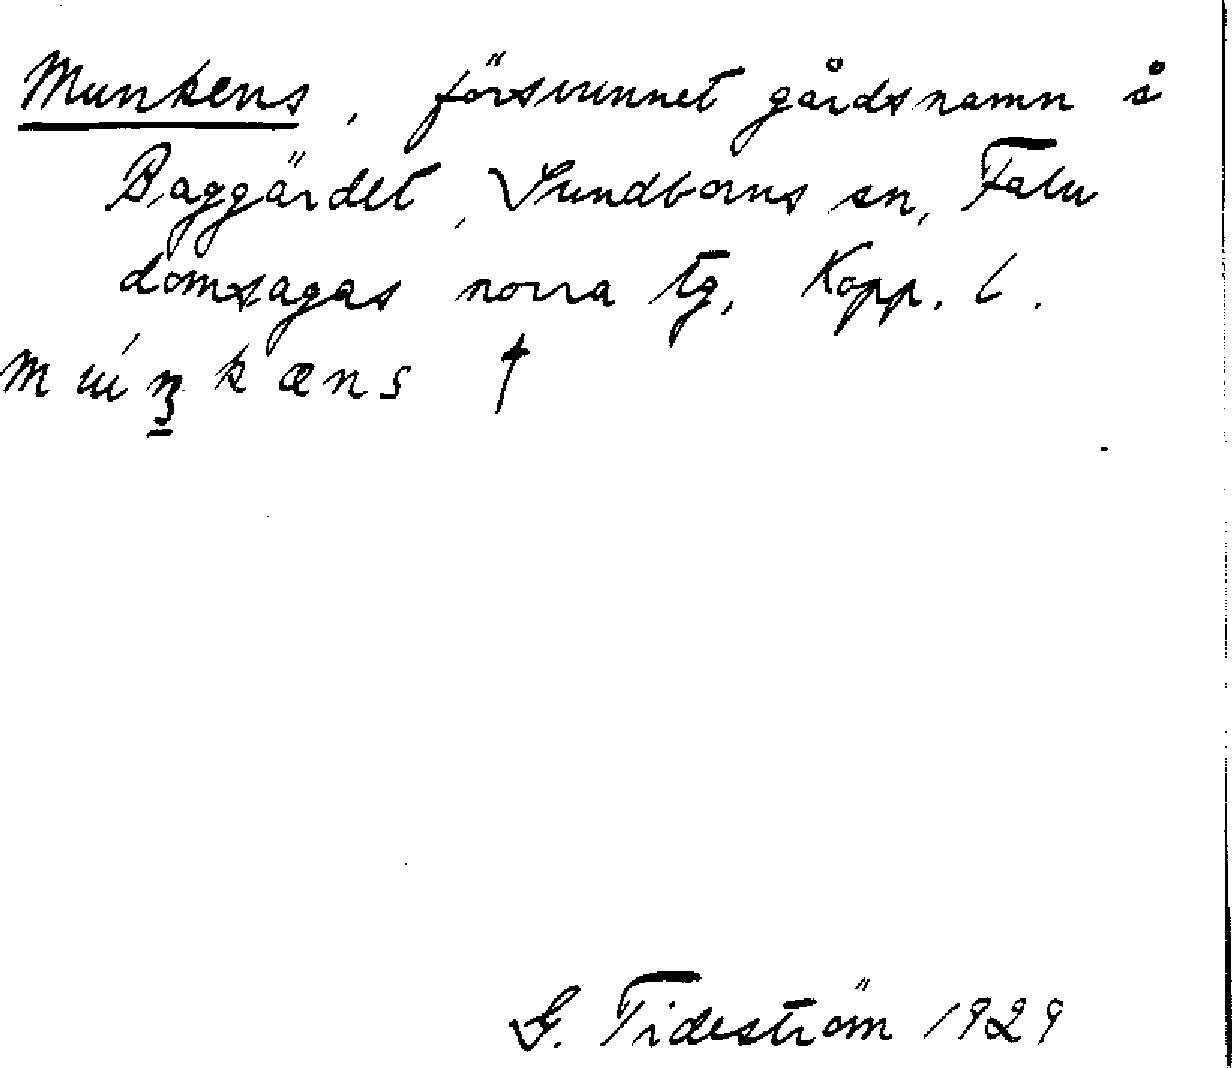 Munkens, försvunnet gårdsnamn å
Baggärdet, Sundborns sn, Falu
domsagas norra tg, Kopp. l.
múŋkæns †
G. Tideström 1929